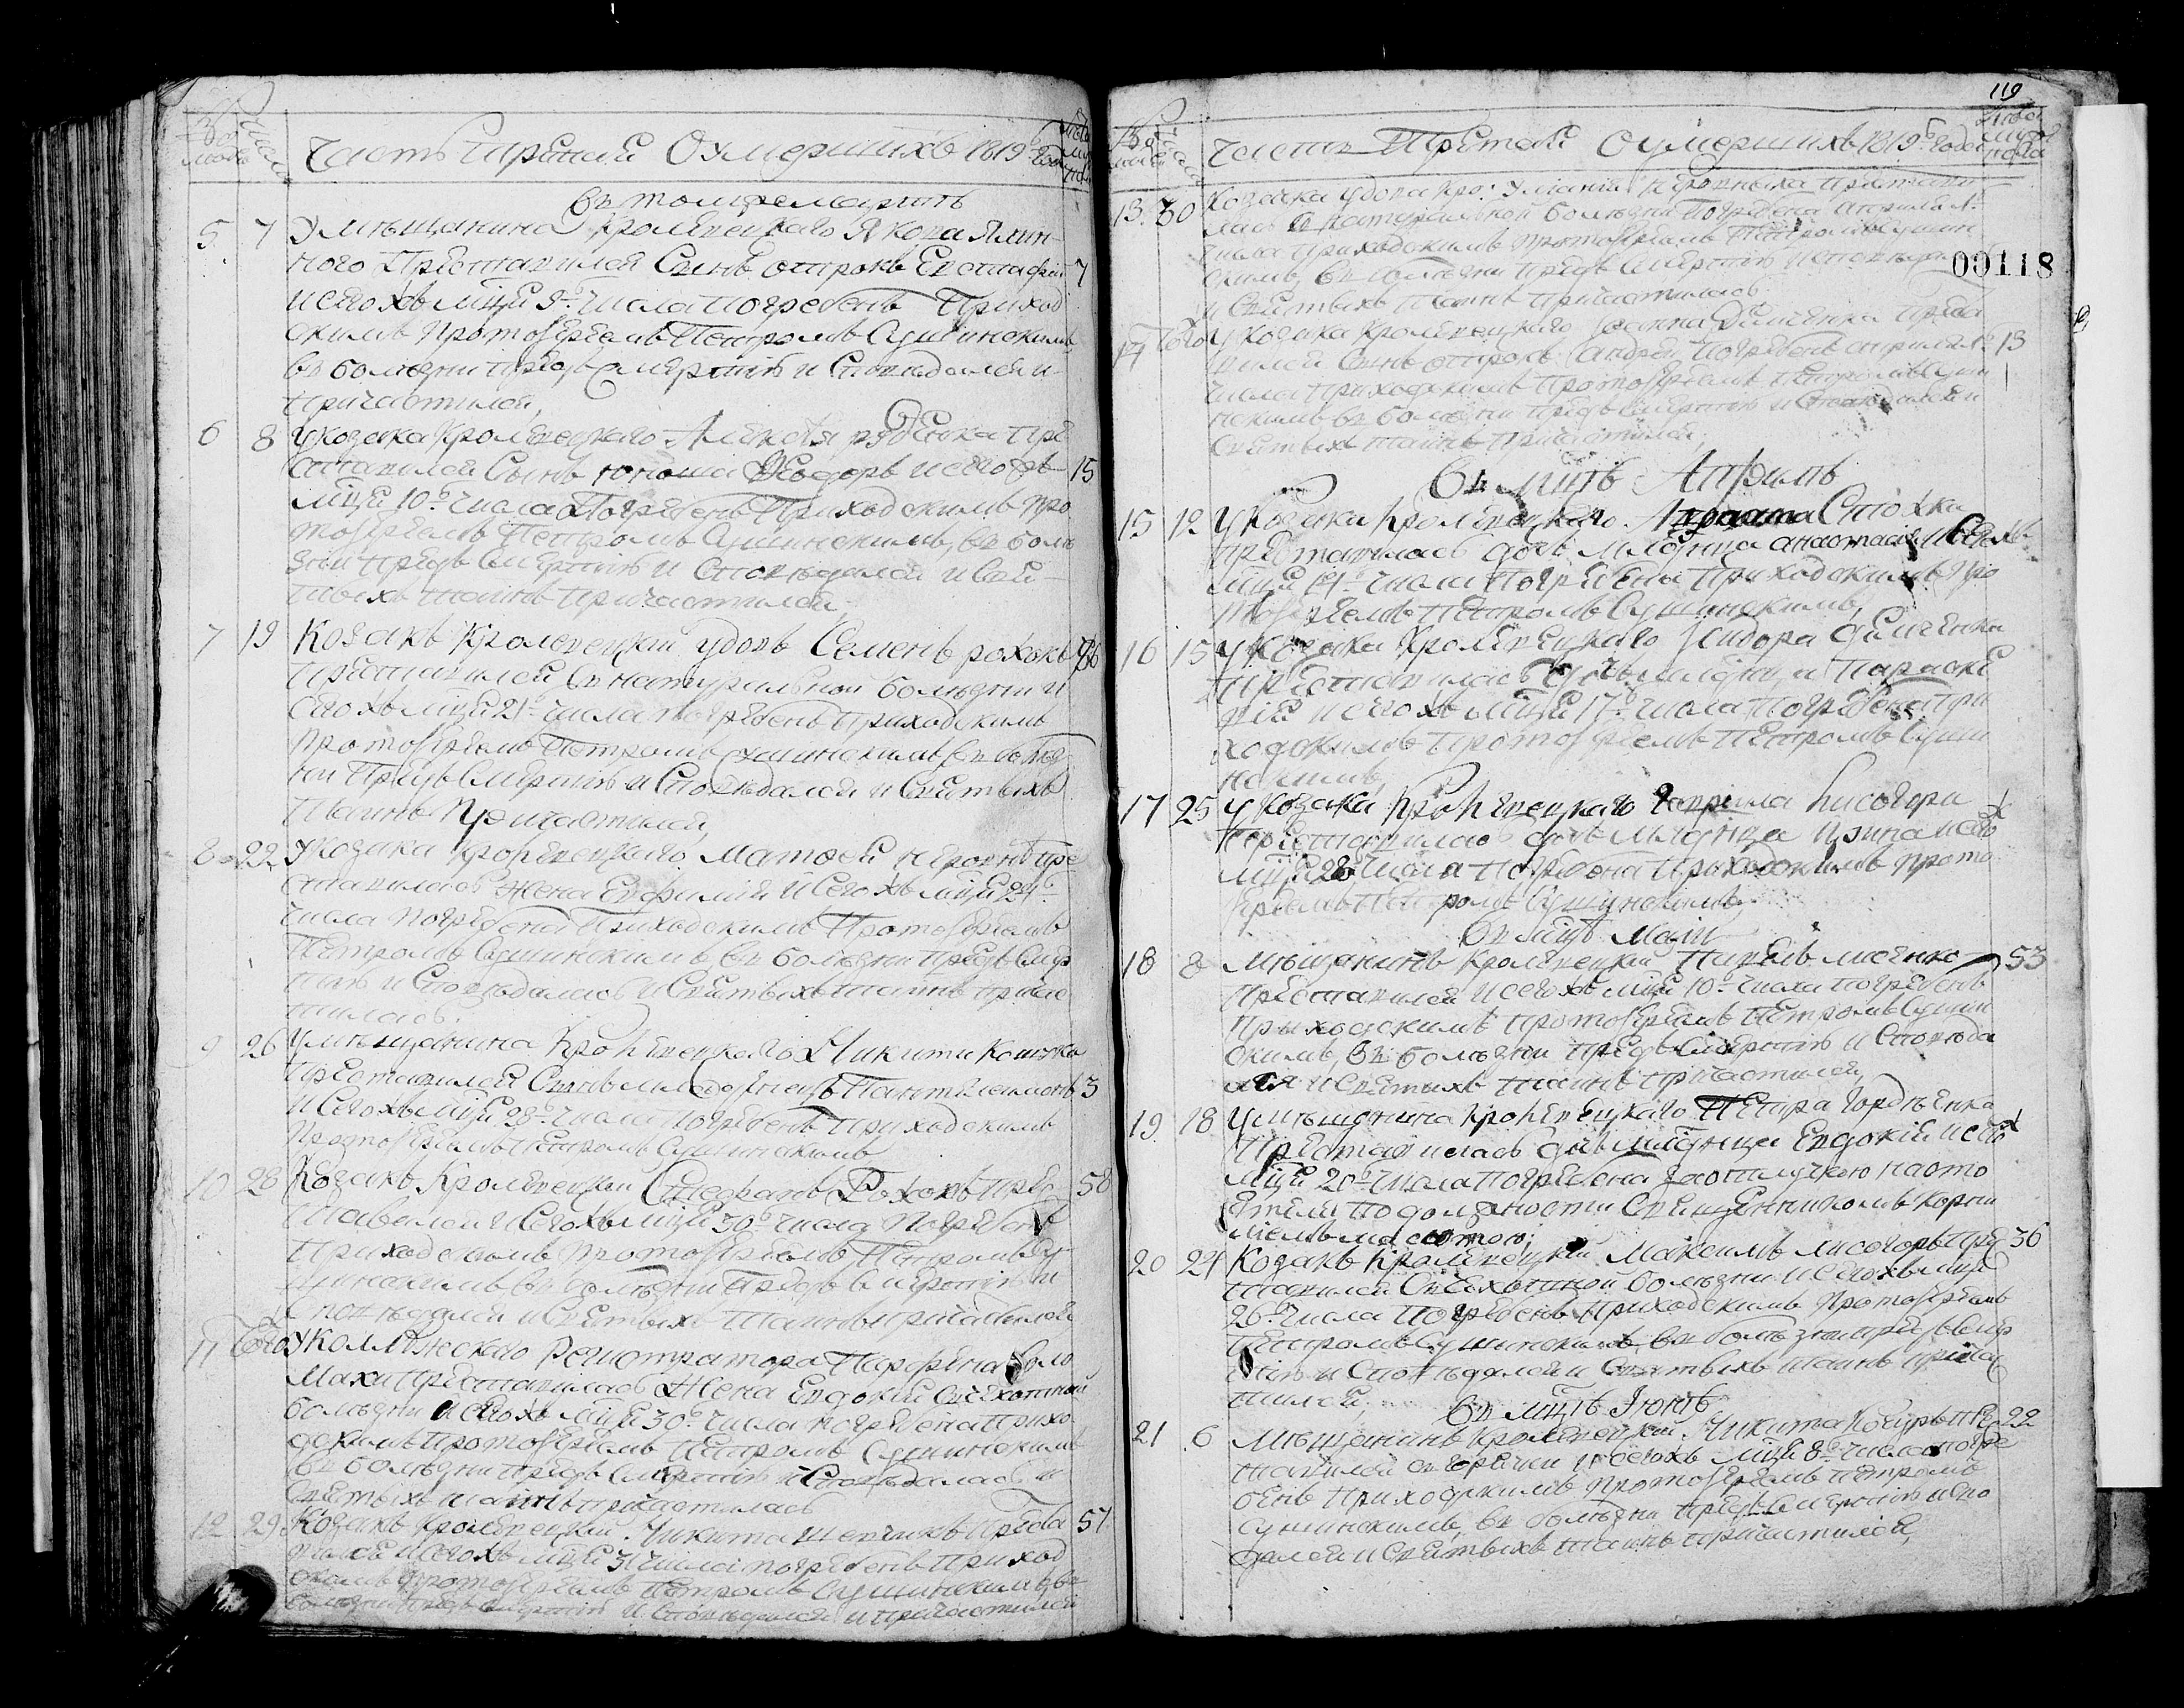 Часть третая О умершихъ 1819 года
въ томъ же мартѣ
5 7 У мѣщанина Кролевецкаго Якова
ного преставился Сынъ отрокъ Евстафій 7
и сего хъ мца 9 числа погребенъ Приход
скимъ протоіереемъ Петромъ Сушинскимъ
въ болезни предъ смертію и споведался и
причастился,
6 8 У козака Кролевецкаго Алексѣя пре
ставился Сынъ юноша Феодоръ и сего хъ 15
мца 10 числа Погребенъ Приходскимъ про
тоіереемъ Петромъ Сушинскимъ, въ боле
зни предъ смертію и споведался и свя
тыхъ таинъ причастился.
7 19 Козакъ Кролевецкій удовъ Семенъ рохокъ
преставился въ натуральной болезни и
сего хъ мца 21 числа погребенъ Приходскимъ
протоіереемъ Петромъ Сушинскимъ въ болез
ни предъ смертію и споведался и святыхъ
таинъ причастился
8 22 У козака кролевецкаго Матфея пре
ставилась жена Евфимія и сего хъ мца 24
числа погребена приходскимъ протоіереемъ
Петромъ Сушинскимъ въ болезни предъ смер
тію и споведалась и святыхъ таинъ причас
тилась.
9 26 У мещанина Кролевецкаго Никити
преставился Сынъ младенецъ Пантелеимонъ 3
и сего хъ мца 28 числа погребенъ приходскимъ
протоіереемъ Петромъ Сушинскимъ
10 28 Козакъ Кролевецкій Стефанъ Рохокъ пре 58
ставился и сего хъ мца 30 числа погребенъ
приходскимъ протоіереемъ Петромъ Су
шинскимъ въ болезни предъ смертію и
споведался и святыхъ таинъ причастился
11 того У Коллежскаго Регистратора Парфена
преставилась жена Евдокія въ сухотной
болезни и сего хъ мца 30 числа погребена прихо
дскимъ протоіереемъ Петромъ Сушинскимъ
въ болезни предъ смертію и споведалась и
святыхъ таинъ причастилась
12 29 Козакъ Кролевецкій Никита преста 57
вился и сего хъ мца 31 числа погребенъ приход
скимъ протоіереемъ Петромъ Сушинскимъ въ
болезни предъ смертію и споведался и причастился
119
Часть Третая О умершихъ 1819 года
00118
13 30 Козачка удова Кро: престави
лась в натуральной болезни погребена априля 1
числа приходскимъ протоіереемъ Петромъ Сушин
скимъ, въ болезни предъ смертію и споведа
и святыхъ таинъ причастилась
14 того У козака Кролевецкаго Іоанна преста
вился сынъ отрокъ андрей погребенъ априля 1 13
числа приходскимъ протоіереемъ Петромъ Суши
нскимъ въ болезни предъ смертію и споведался и
святыхъ таинъ причастился,
Въ мцѣ Априлѣ
15 12 У козака Кролевецкаго
преставилась дочь младенца анастасія и сего хъ
мца 14 числа погребена приходскимъ про
тоіереемъ Петромъ Сушинскимъ,
16 15 У козака Кролевецкаго Исидора
преставилась дочь младенца Параске
вія и сего хъ мца 17 числа погребена при
ходскимъ протоіереемъ Петромъ Суши
нскимъ,
17 25 У козака Кролевецкаго Гаврила Лисогора
преставилась дочь младенца Ирина и сего хъ
мца 28 числа погребена приходскимъ прото
іереемъ Петромъ Сушинскимъ,
Въ мцѣ Маіи
18 8 Мещанинъ Кролевецкій Павелъ 53
преставился и сего хъ мца 10 числа погребенъ
приходскимъ протоіереемъ Петромъ Сушин
скимъ, въ болезни предъ смертію и споведа
лся и святыхъ таинъ причастился,
19 18 У мещанина Кролевецкаго Петра Гордѣенка
преставилась дочь младенца Евдокія и сего хъ
мца 20 числа погребена за отлучкою насто
ятеля по должности священникомъ Корни
ліемъ
20 24 Козакъ Кролевецкій Максимъ Лисогоръ пре 36
ставился въ сухотной болезни и сего хъ мца
26 числа погребенъ приходскимъ протоіереемъ
Петромъ Сушинскимъ, въ болезни предъ смер
тію и споведался и святыхъ таинъ причас
тился,
Въ мцѣ Іюнѣ
21 6 Мещанинъ Кролевецкій Никита пре 22
ставился въ горячки и сего хъ мца 8 числа погре
бенъ приходскимъ протоіереемъ Петромъ
Сушинскимъ, въ болезни предъ смертію и спо
дался и святыхъ таинъ причастился,